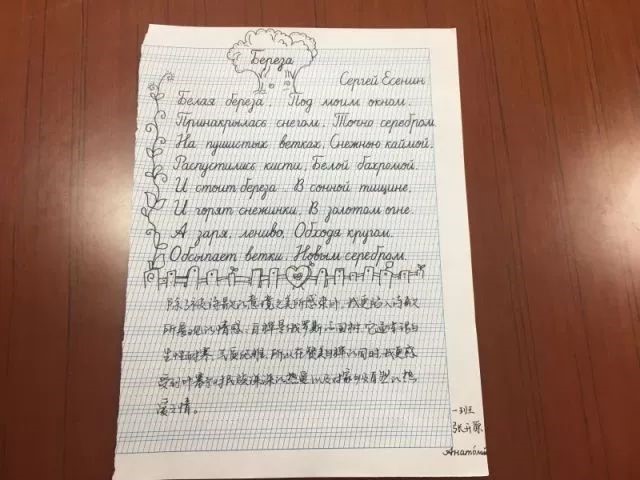 Береза
Сергей Есенин
Белая береза, Под моим окном,
Принакрылась снегом, Точно серебром.
На пушистых ветках, Снежною каймой,
Распустились кисти, Белой бахромой.
И стоит береза, В сонной тишине,
И горят снежинки, В золотом огне.
А заря, лениво, Обходя кругом,
Обсыпает ветки, Новым серебром.
除了被诗歌的意境之美所感染外,我更陷入诗歌
所表现的情感。白桦是俄罗斯的国树,它通体洁白
生性耐寒,所以在赞美白桦的同时,我更感
受到叶赛宁对民族深深的热爱以及对家乡的热
爱之情。
一班
Анатолий